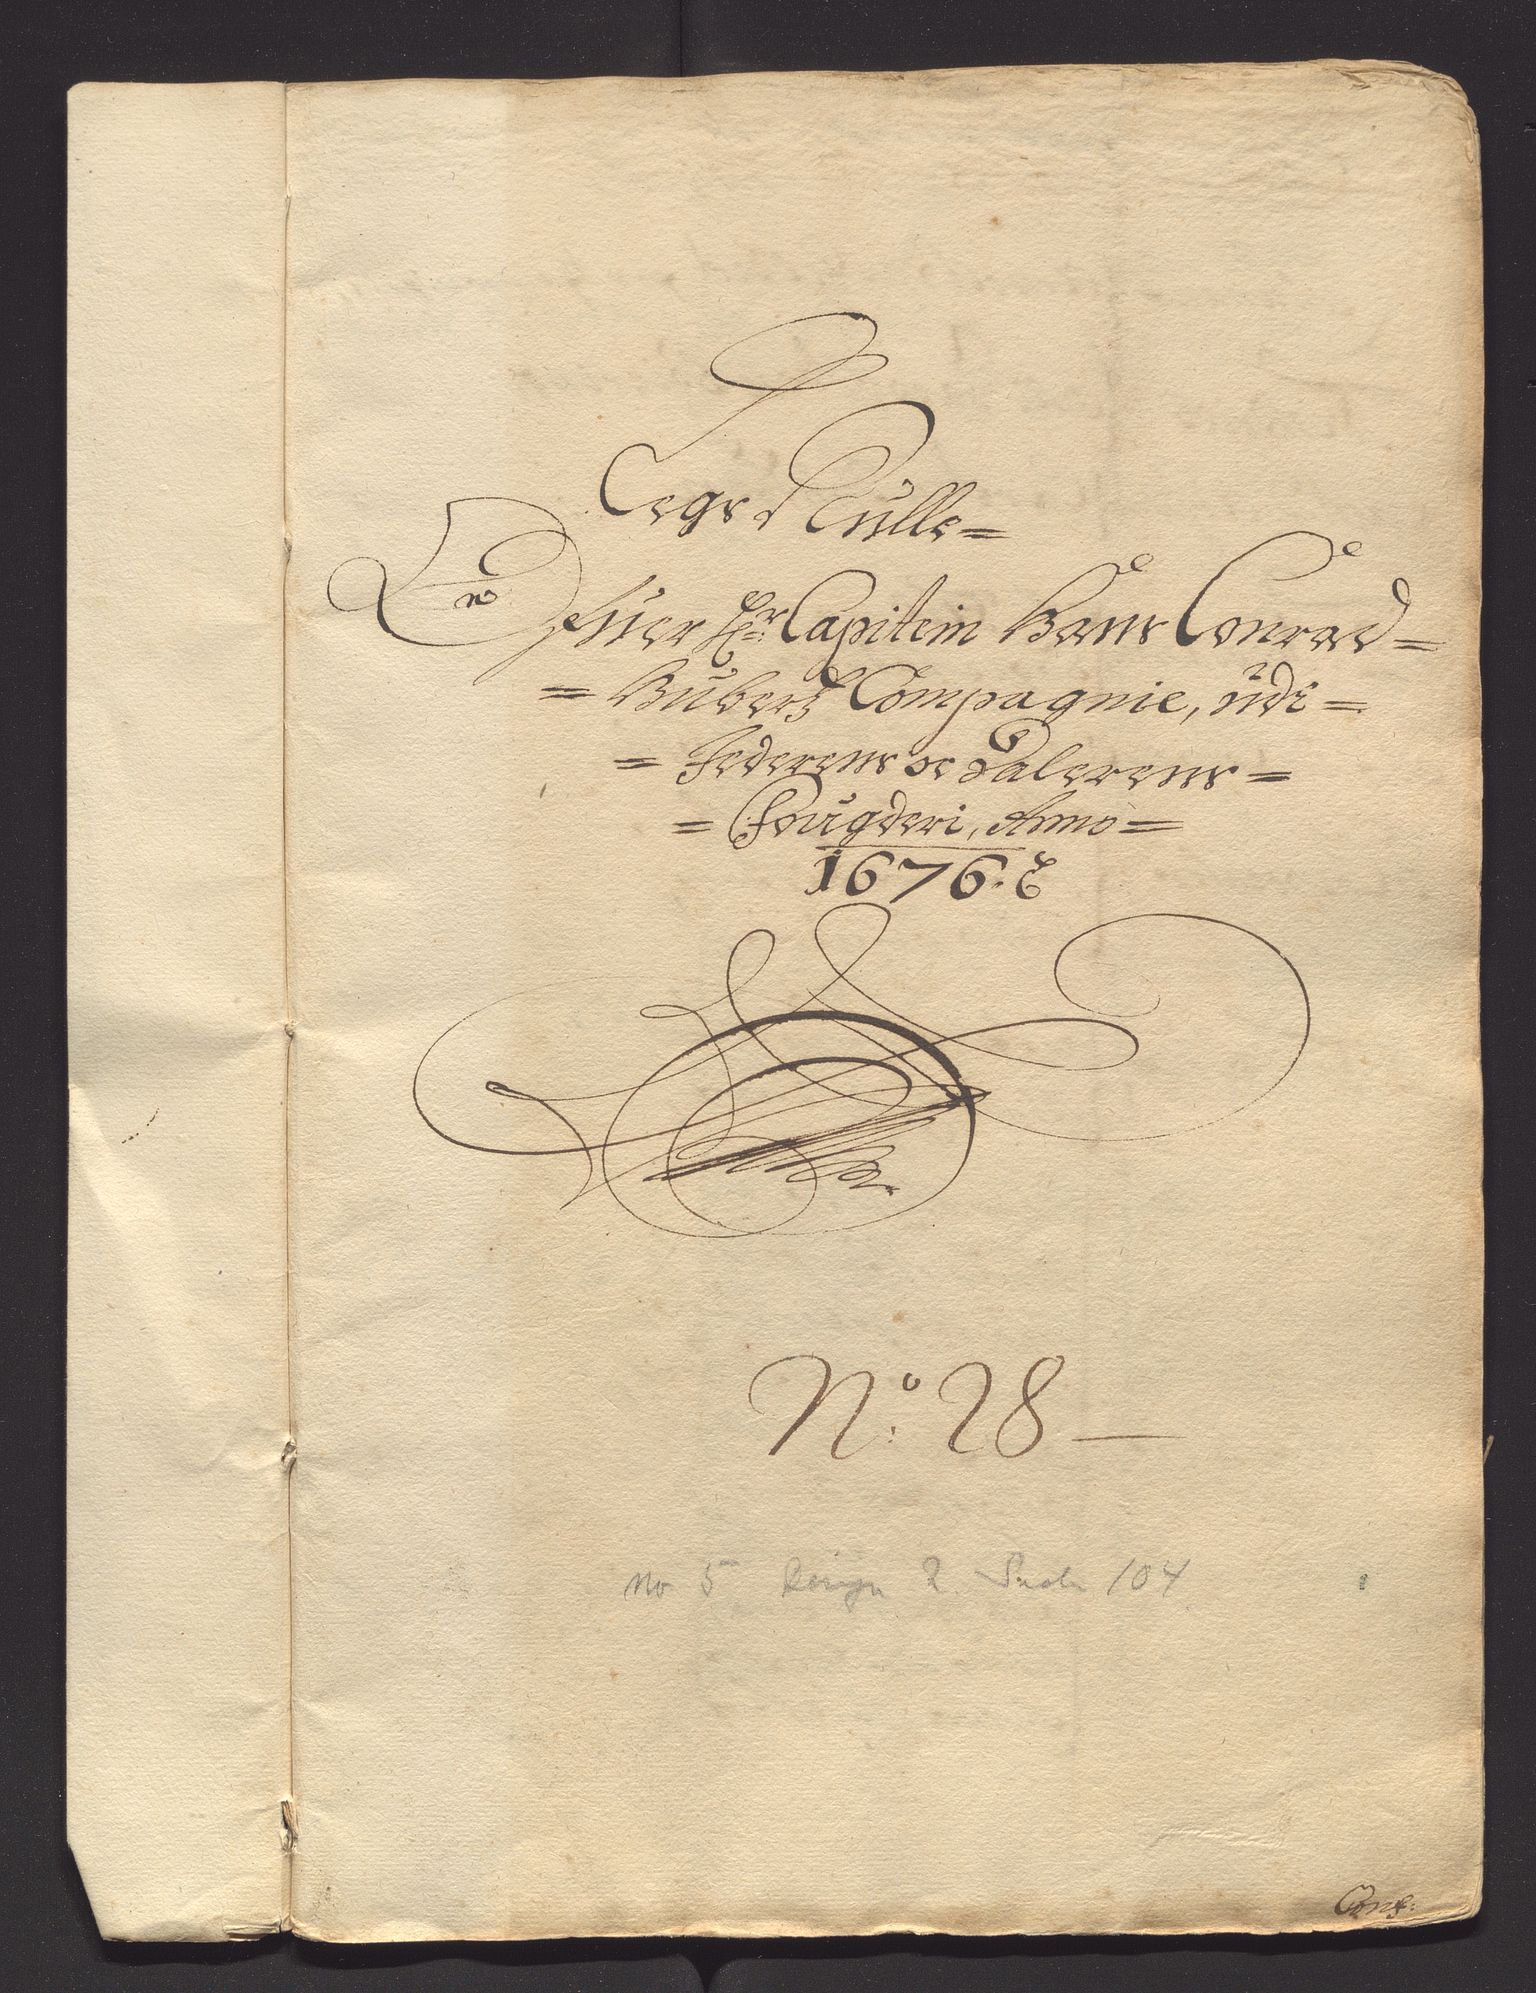 Legs Rulle =
Ofuer Hr: Capitein Hans Conrad =
= Huberts Compagnie, udi =
= Jederens oc Dalerens =
= Fougderi, Anno =
1676.
No: 28 —
No 5 2. 104
Conf: